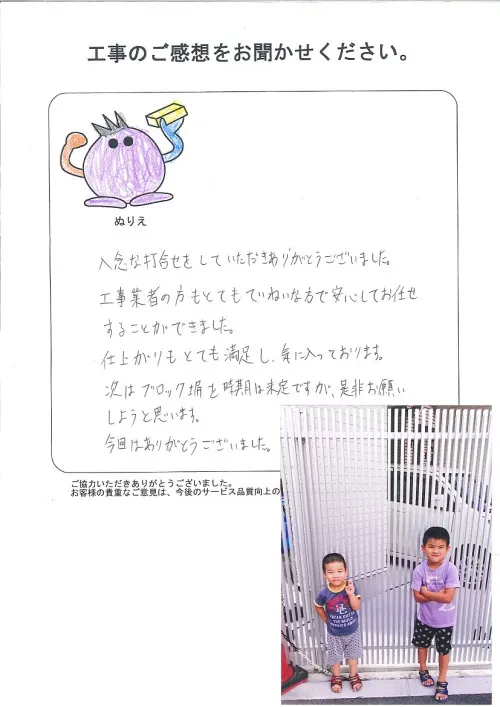 工事のご感想をお聞かせください。
ぬりえ
入念な打合せをしていただきありがとうございました。
工事業者の方もとてもていねいな方で安心してお任せ
することができました。
仕上がりもとても満足し、気に入っております。
次はブロック塀を時期は未定ですが、是非お願い
しようと思います。
今回はありがとうございました。
ご協力いただきありがとうございました。
お客様の貴重なご意見は、今後のサービス品質向上の